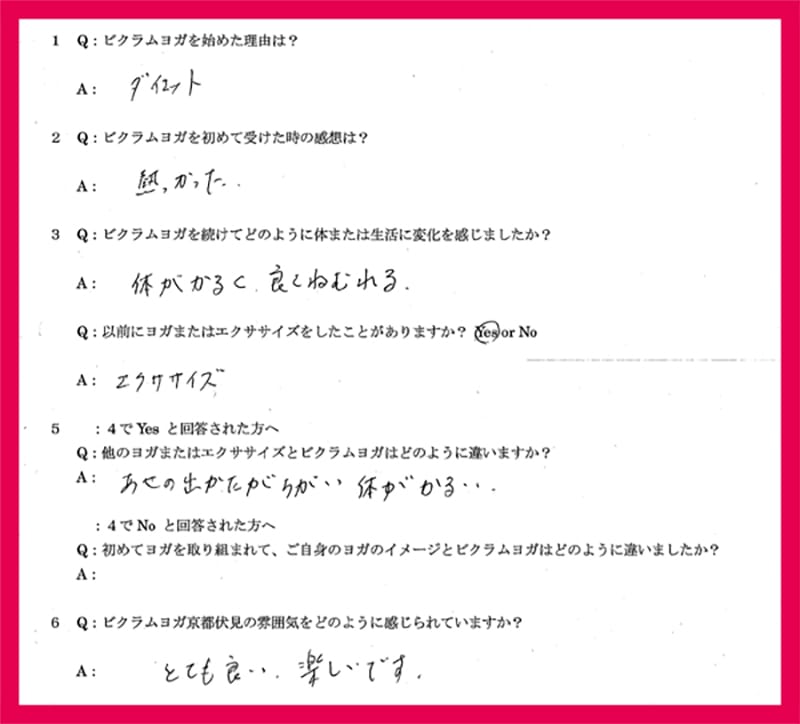 1 Q：ビクラムヨガを始めた理由は？
A： ダイエット
2 Q：ビクラムヨガを初めて受けた時の感想は？
A： 熱かった．
3 Q：ビクラムヨガを続けてどのように体または生活に変化を感じましたか？
A： 体がかるく、良くねむれる．
Q：以前にヨガまたはエクササイズをしたことがありますか？ Yes or No
A： エクササイズ
5 ：4でYes と回答された方へ
Q：他のヨガまたはエクササイズとビクラムヨガはどのように違いますか？
A： あせの出かたがちがい 体がかるい．
：4でNo と回答された方へ
Q：初めてヨガを取り組まれて、ご自身のヨガのイメージとビクラムヨガはどのように違いましたか？
A：
6 Q：ビクラムヨガ京都伏見の雰囲気をどのように感じられていますか？
A： とても良い．楽しいです．